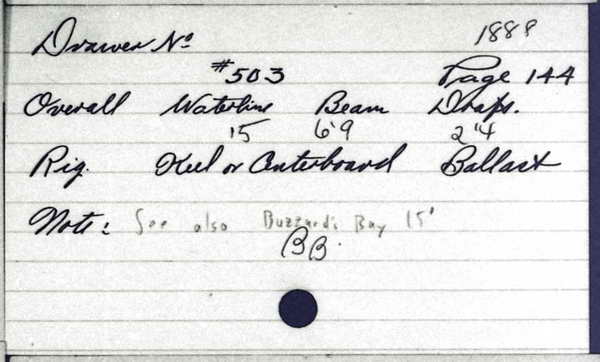 Drawer No 1888
#503 Page 144
Overall Waterline Beam Draft.
15 6'9 2'4
Rig. Keel or Centerboard Ballast
Note: See also Buzzards Bay 15'
BB.